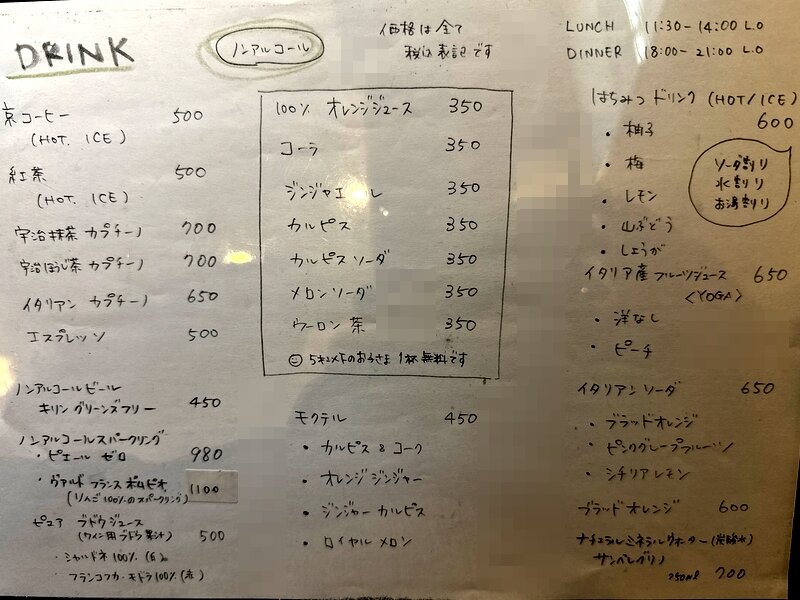 DRINK
ノンアルコール
価格は全て
税込表記です
LUNCH 11:30-14:00 L.O
DINNER 18:00-21:00 L.O
京コーヒー 500
(HOT, ICE)
紅茶 500
(HOT, ICE)
宇治抹茶 カプチーノ 700
宇治ほうじ茶 カプチーノ 700
イタリアン カプチーノ 650
エスプレッソ 500
ノンアルコールビール
キリン グリーンズフリー 450
ノンアルコールスパークリング
・ピエール ゼロ 980
・ヴァルド フランス ポムビオ 1100
(りんご100%のスパークリング)
ピュア ブドウジュース
(ワイン用ブドウ果汁) 500
・シャルドネ 100% (白)
・フランコフカ・モドラ 100% (赤)
100% オレンジジュース 350
コーラ 350
ジンジャエール 350
カルピス 350
カルピスソーダ 350
メロンソーダ 350
ウーロン茶 350
5才以下のお子さま 1杯無料です
モクテル 450
・カルピス&コーク
・オレンジジンジャー
・ジンジャーカルピス
・ロイヤルメロン
はちみつドリンク (HOT/ICE)
600
・柚子
・梅
・レモン
・山ぶどう
・しょうが
ソーダ割り
水割り
お湯割り
イタリア産フルーツジュース 650
<YOGA>
・洋なし
・ピーチ
イタリアンソーダ 650
・ブラッドオレンジ
・ピンクグレープフルーツ
・シチリアレモン
ブラッドオレンジ 600
ナチュラルミネラルウォーター(炭酸水)
サンペレグリノ
250ml 700